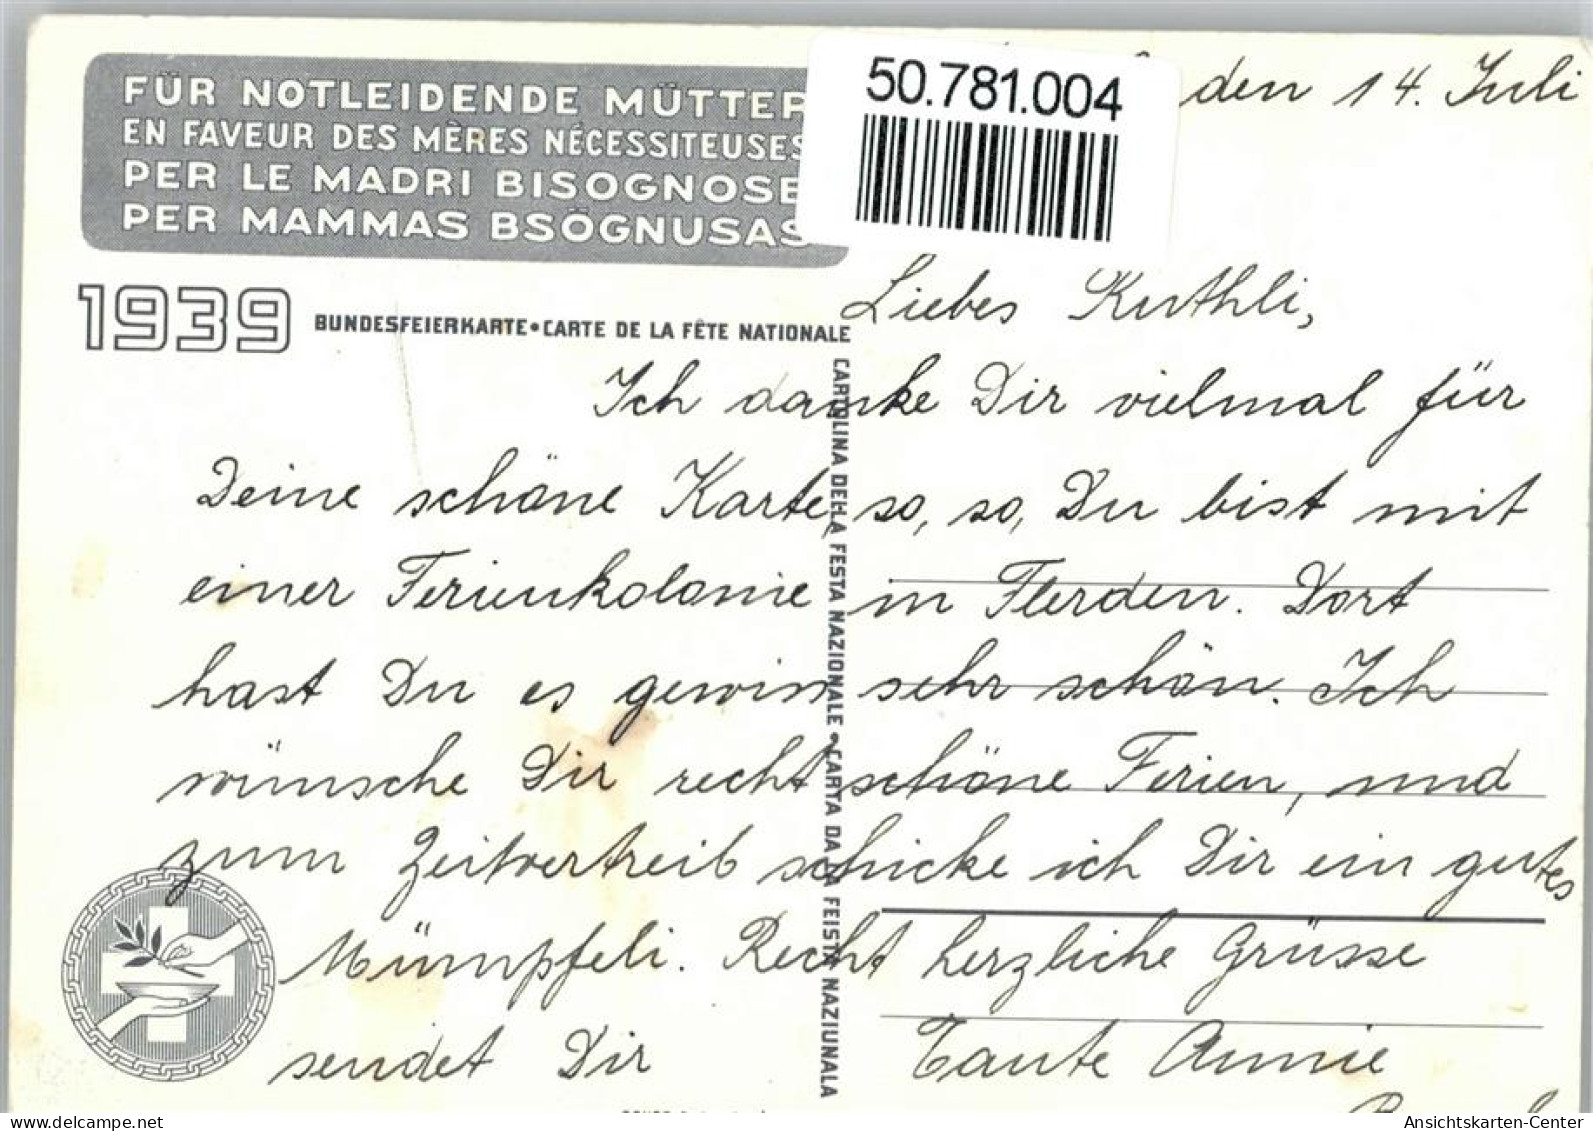 FÜR NOTLEIDENDE MÜTTER
EN FAVEUR DES MÈRES NÉCESSITEUSES
PER LE MADRI BISOGNOSE
PER MAMMAS BSÖGNUSAS
50.781.004
den 14. Juli
1939
BUNDESFEIERKARTE • CARTE DE LA FÊTE NATIONALE
CARTOLINA DELLA FESTA NAZIONALE • CARTA DA LA FEISTA NAZIUNALA
Liebes Ruthli,
Ich danke Dir vielmal für
Deine schöne Karte, so, so, Du bist mit
einer Ferienkolonie in Flerden. Dort
hast Du es gewiss sehr schön. Ich
wünsche Dir recht schöne Ferien, und
zum Zeitvertreib schicke ich Dir ein gutes
Mümpfeli. Recht herzliche Grüsse
sendet Dir Tante Annie
Ansichtskarten-Center